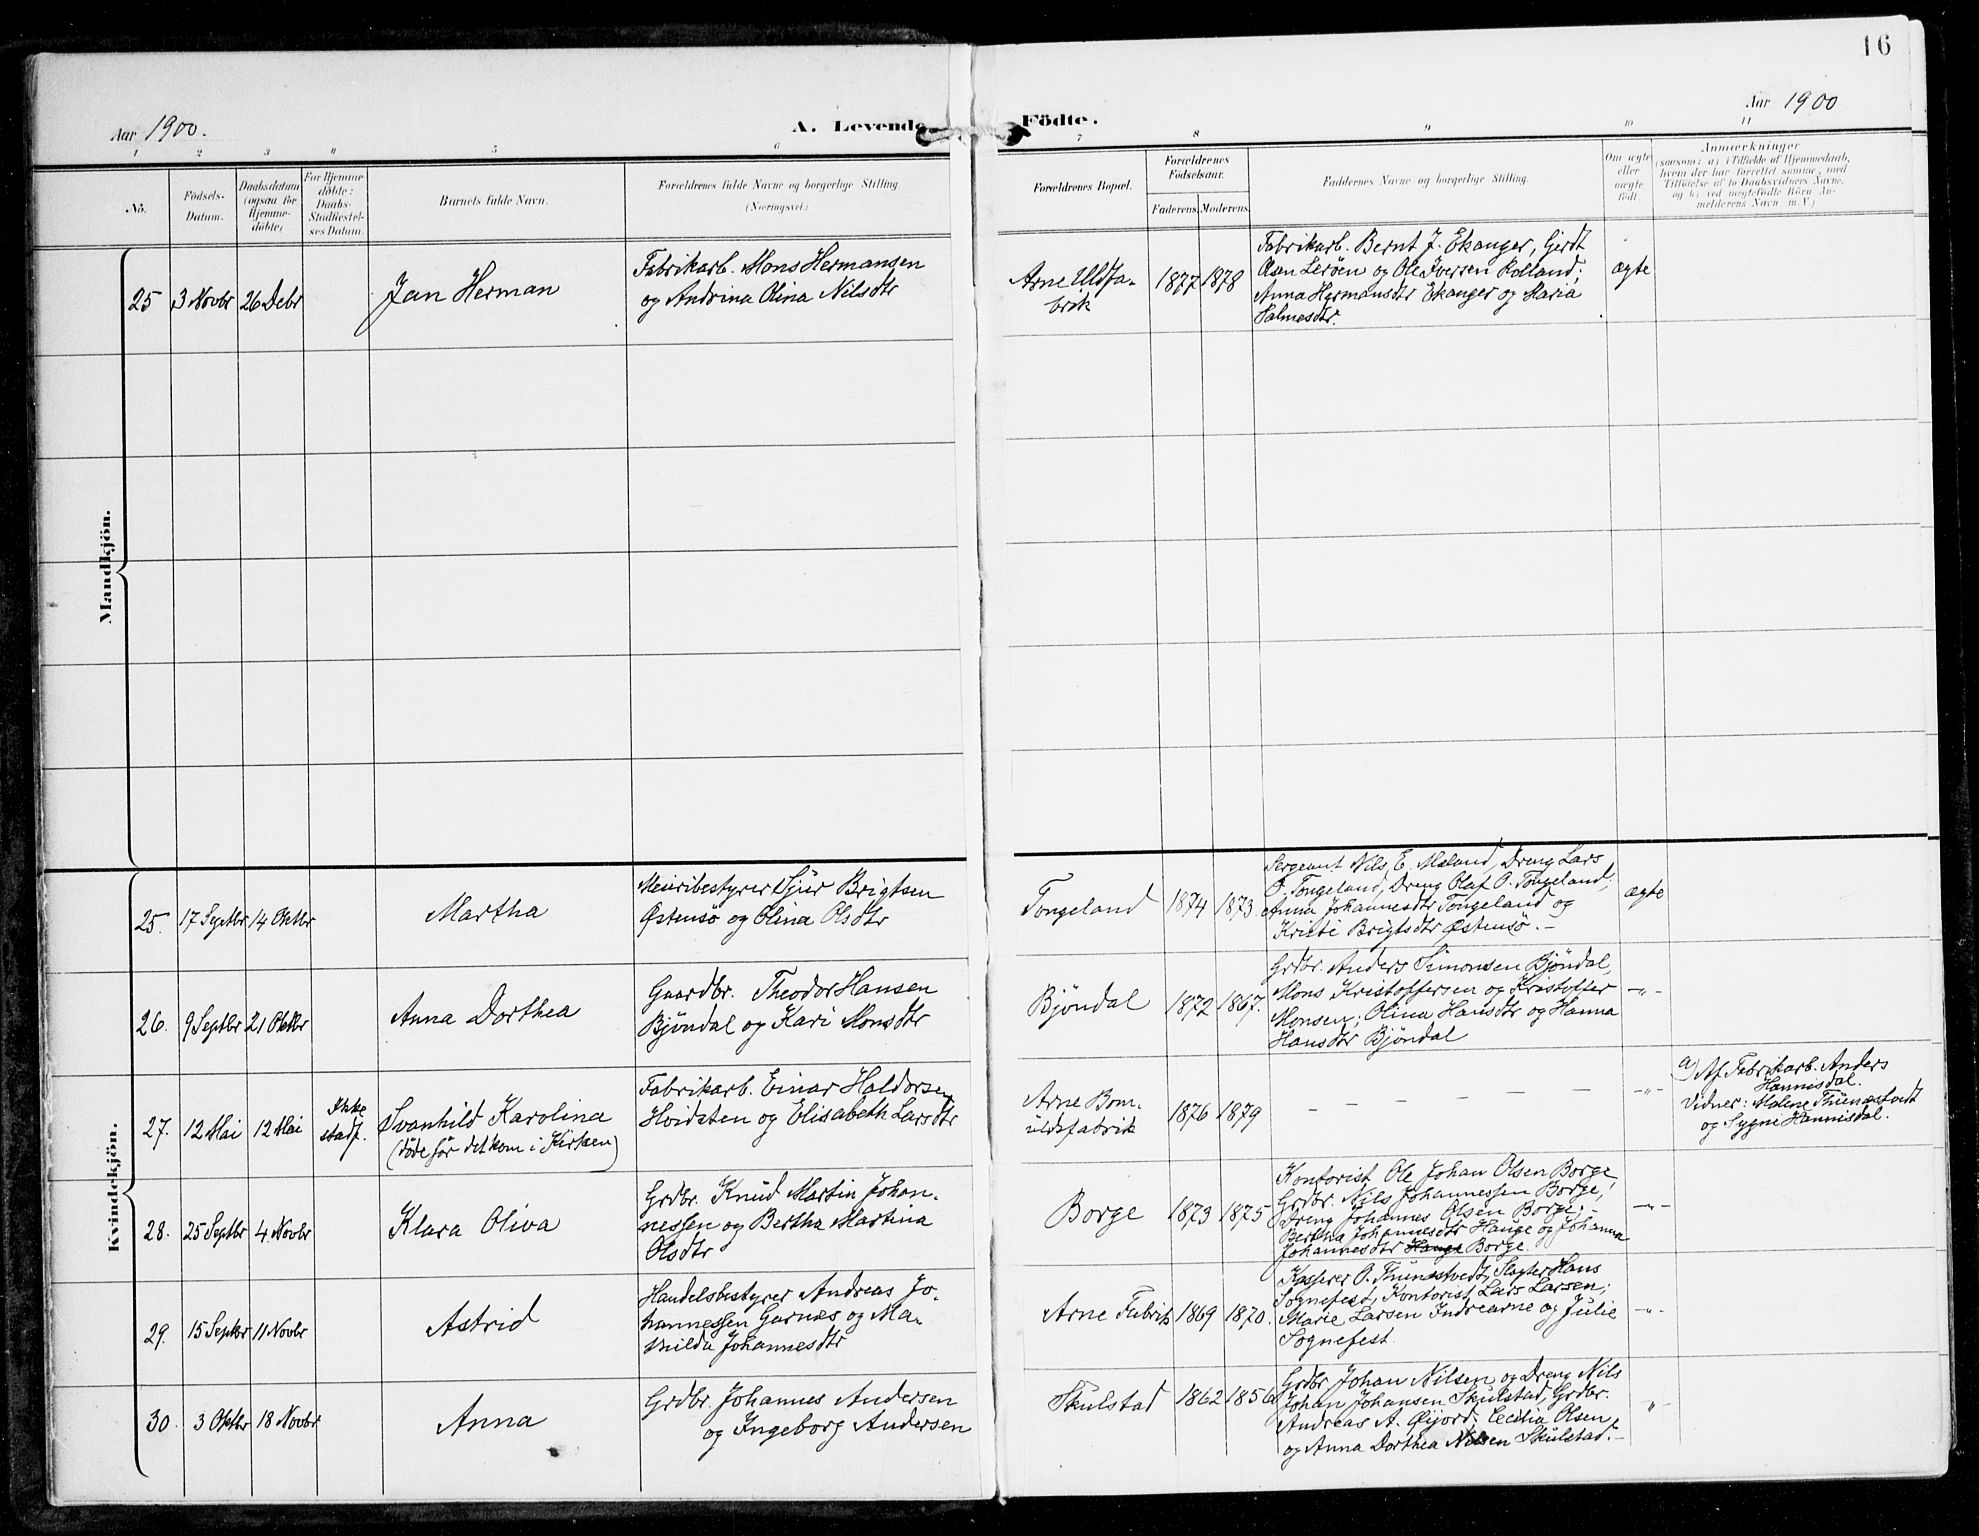 16
Aar 1900.
A. Levende
Födte.
Aar 1900
1 2 3 4 5 6 7 8 9 10 11
Nö.
Födsels-
Datum.
Daabsdatum
(ogsaa for
Hjemme-
döbte)
For Hjemme-
döbte:
Daabs-
Stadfæstel-
ses Datum.
Barnets fulde Navn.
Forældrenes fulde Navne og borgerlige Stilling
(Næringsvei.)
Forældrenes Bopæl.
Forældrenes
Födselsaar.
Faderens.
Moderens.
Faddernes Navne og borgerlige Stilling.
Om ægte
eller
uægte
födt.
Anmærkninger
(saasom: a) i Tilfælde af Hjemmedaab,
hvem der har forrettet samme, med
Tilföielse af to Daabsvidners Navne,
og b) ved uægtefödte Börn An-
melderens Navn m. V.)
Mandkjön.
25 3 Novbr 26 Debr
Jan Herman
Fabrikarb. Mons Hermansen
og Andrina Olina Nilsdtr
Arne Uldfa-
brik
1877 1878
Fabrikarb. Bernt J. Ekanger, Gjerdt
Olsen Lerøen og Ole Iversen Rolland;
Anna Hermansdtr Ekanger og Maria
Salmesdtr.
ægte
Kvindekjön.
25. 17 Septbr 14 Oktbr
Martha
Meieribestyrer Sjur Brigtsen
Østensö og Olina Olsdtr
Tongeland
1874 1873.
Sergeant Nils E. Mæland, Dreng Lars
O. Tongeland, Dreng Olaf O. Tongeland;
Anna Johannesdtr Tongeland og
Kristi Brigtsdtr Østensö. -
ægte
26. 9 Septbr 21 Oktbr
Anna Dorthea
Gaardbr. Theodor Hansen
Bjöndal og Kari Monsdtr
Bjöndal
1872 1867.
Grdbr. Anders Simonsen Bjöndal,
Mons Kristoffersen og Kristoffer
Monsen; Olina Hansdtr og Hanna
Hansdtr Bjöndal
-"-
27. 12 Mai 12 Mai
Ikke
stadf.
Svanhild Karolina
(døde før det kom i Kirken)
Fabrikarb. Einar Haldorsen
Hvidsten og Elisabeth Larsdtr
Arne Bom-
uldsfabrik
1876 1879
— — — — — —
-"-
a) Af Fabrikarb. Anders
Hannisdal.
Vidner: Malene Thunæstvedt
og Sygni Hannisdal.
28. 25 Septbr 4. Novbr
Klara Oliva
Grdbr. Knud Martin Johan-
nessen og Bertha Martina
Olsdtr
Borge
1873 1875
Kontorist Ole Johan Olsen Borge,
Grdbr. Nils Johannessen Borge,
Dreng Johannes Olsen Borge; -
Bertha Johannesdtr Hauge og Johanna
Johannesdtr Hauge Borge.
-"-
29. 15 Septbr 11 Novbr
Astrid
Handelsbestyrer Andreas Jo-
hannessen Garnes og Ma-
thilda Johannesdtr
Arne Fabrik
1869 1870.
Kasserer O. Thunæstvedt, Slagter Hans
Sognefest, Kontorist Lars Larsen;
Marie Larsen Indrearne og Julie
Sognefest
-"-
30. 3 Oktbr 18 Novbr
Anna
Grdbr. Johannes Andersen
og Ingeborg Andersen
Skulstad
1862 1856
Grdbr. Johan Nilsen og Dreng Nils
Johan Johansen Skulstad, Grdbr.
Andreas A. Øijord; Cecilia Olsen
og Anna Dorthea Nilsen Skulstad. -
"-